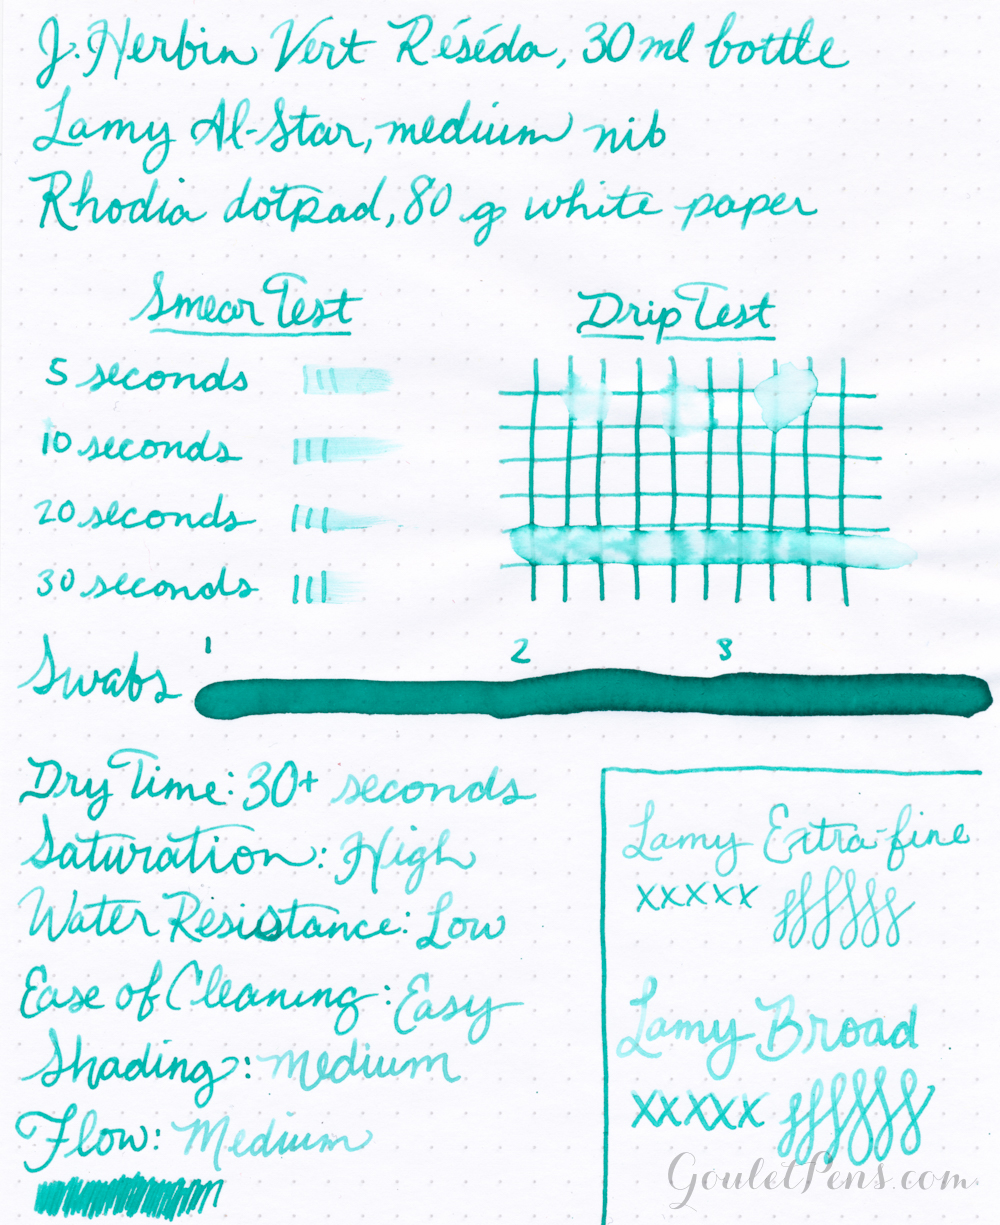 J. Herbin Vert Réséda, 30 ml bottle
Lamy Al-Star, medium nib
Rhodia dotpad, 80 g white paper
Smear Test
5 seconds
10 seconds
20 seconds
30 seconds
Drip Test
Swabs
1 2 3
Dry Time: 30+ seconds
Saturation: High
Water Resistance: Low
Ease of Cleaning: Easy
Shading: Medium
Flow: Medium
Lamy Extra-fine
xxxxx
Lamy Broad
xxxxx
GouletPens.com